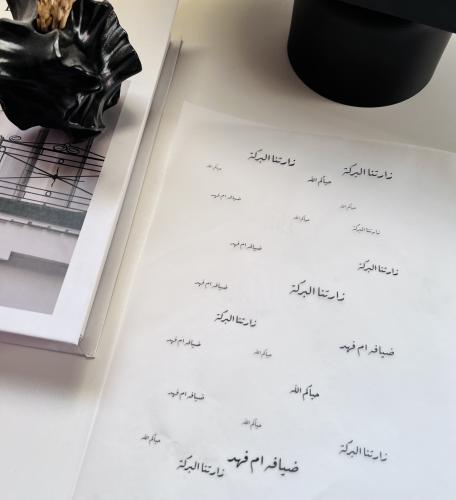 زارتنا البركة
زارتنا البركة
حياكم الله
حياكم الله
ضيافة ام فهد
حياكم الله
حياكم الله
زارتنا البركة
ضيافة ام فهد
زارتنا البركة
ضيافة ام فهد
زارتنا البركة
زارتنا البركة
ضيافة ام فهد
حياكم الله
ضيافة ام فهد
ضيافة ام فهد
حياكم الله
حياكم الله
حياكم الله
زارتنا البركة
ضيافة ام فهد
زارتنا البركة